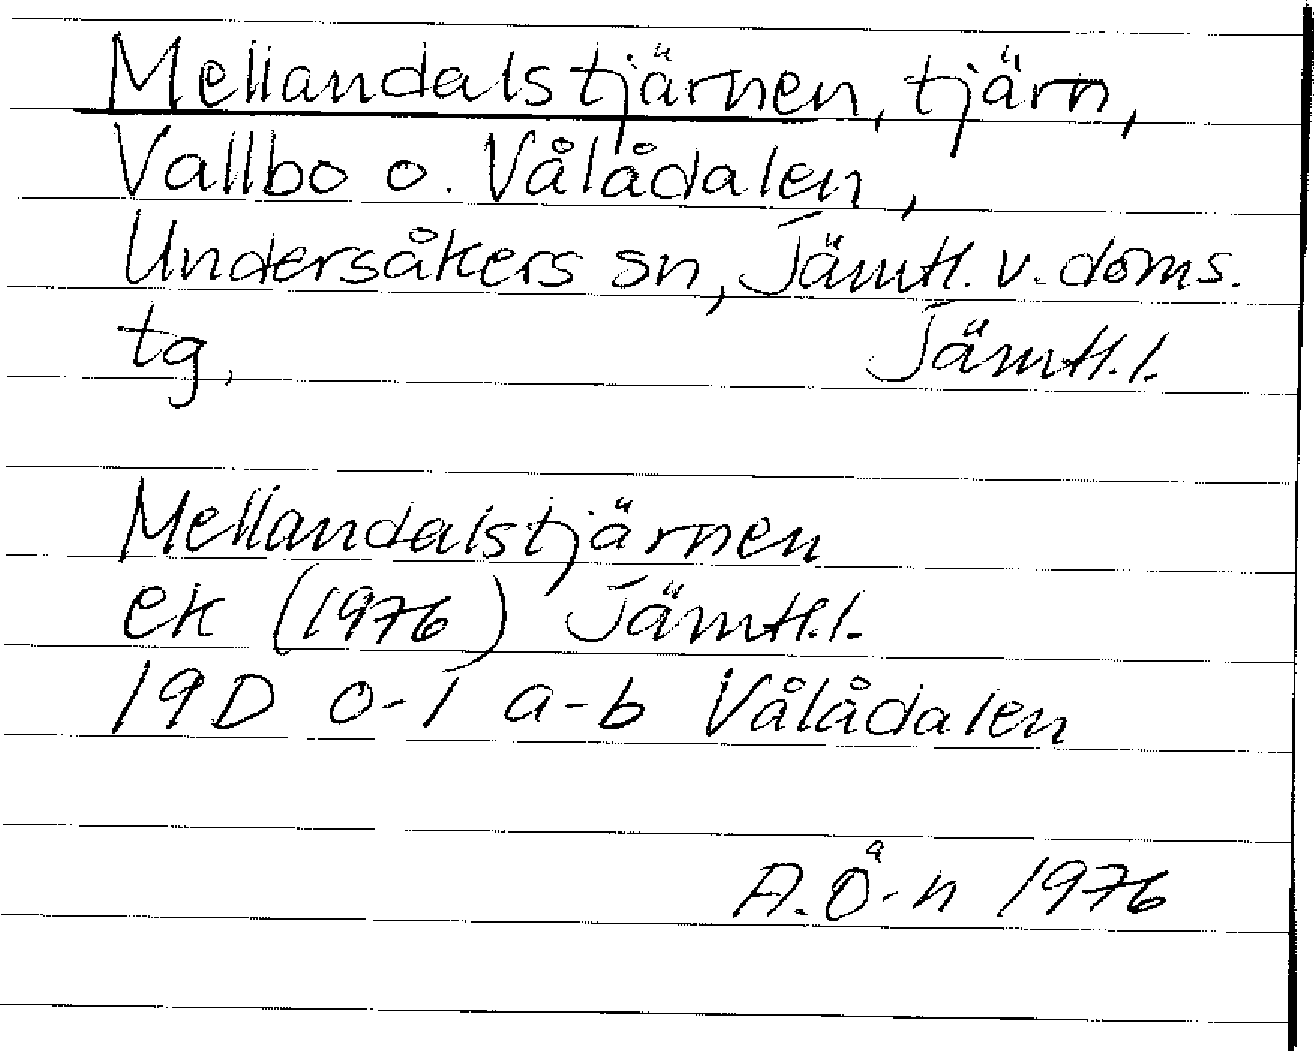 Mellandalstjärnen, tjärn,
Vallbo o. Vålådalen,
Undersåkers sn, Jämtl. v. doms.
tg, Jämtl. l.
Mellandalstjärnen
ek (1976) Jämtl. l.
19D 0-1 a-b Vålådalen
A. Ö-n 1976